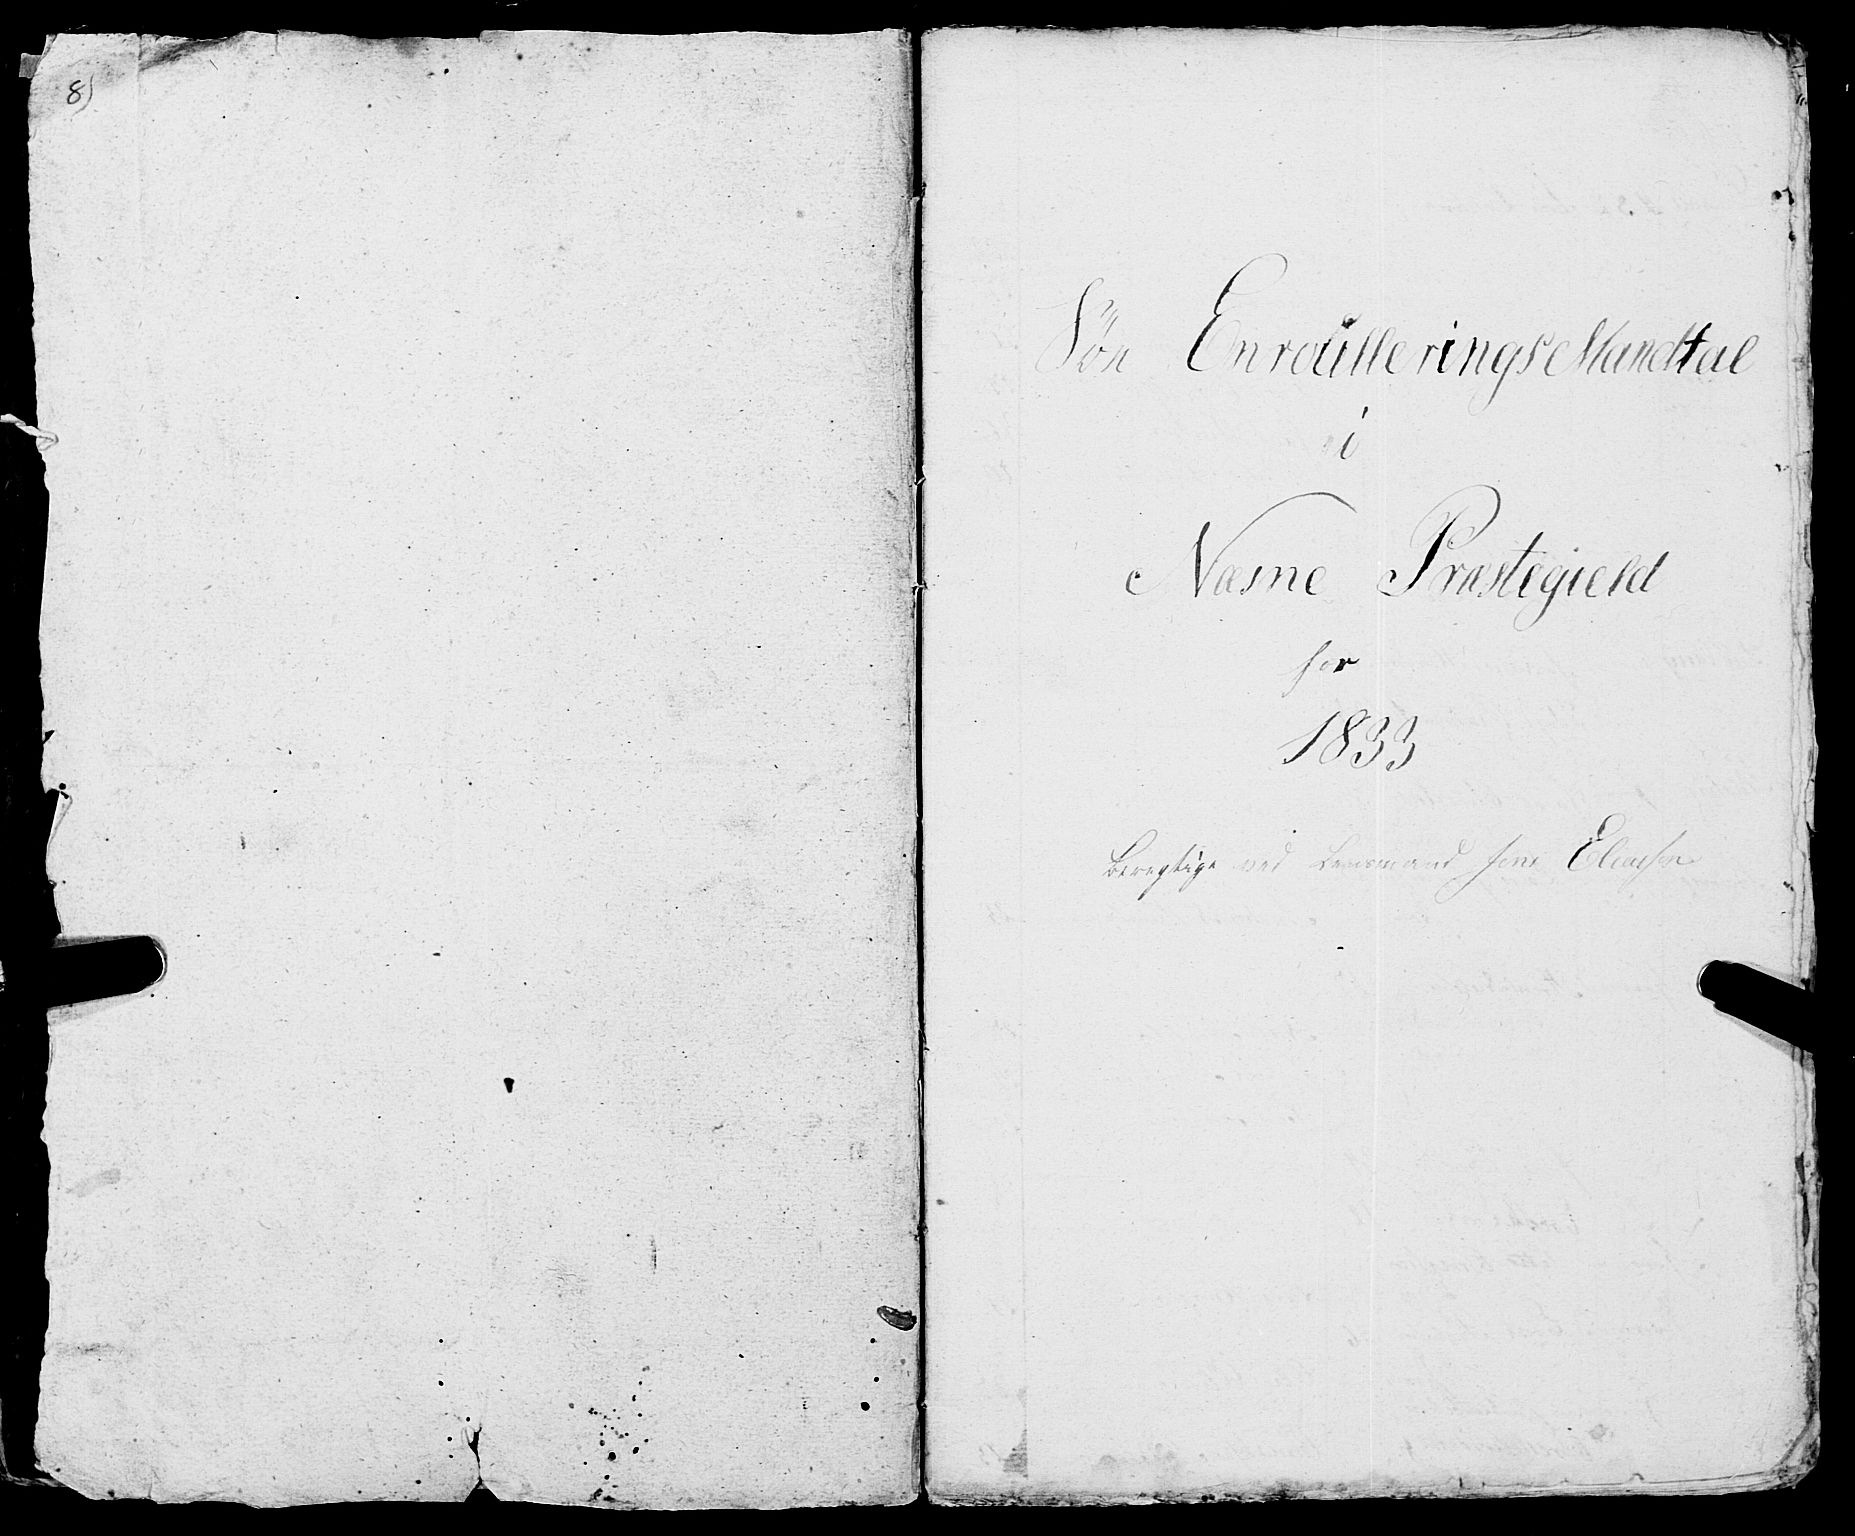 8)
Söe EnroulleringsMandtal
i
Næsne Præstegield
for
1833
ved Lensmand Jens Eliasen